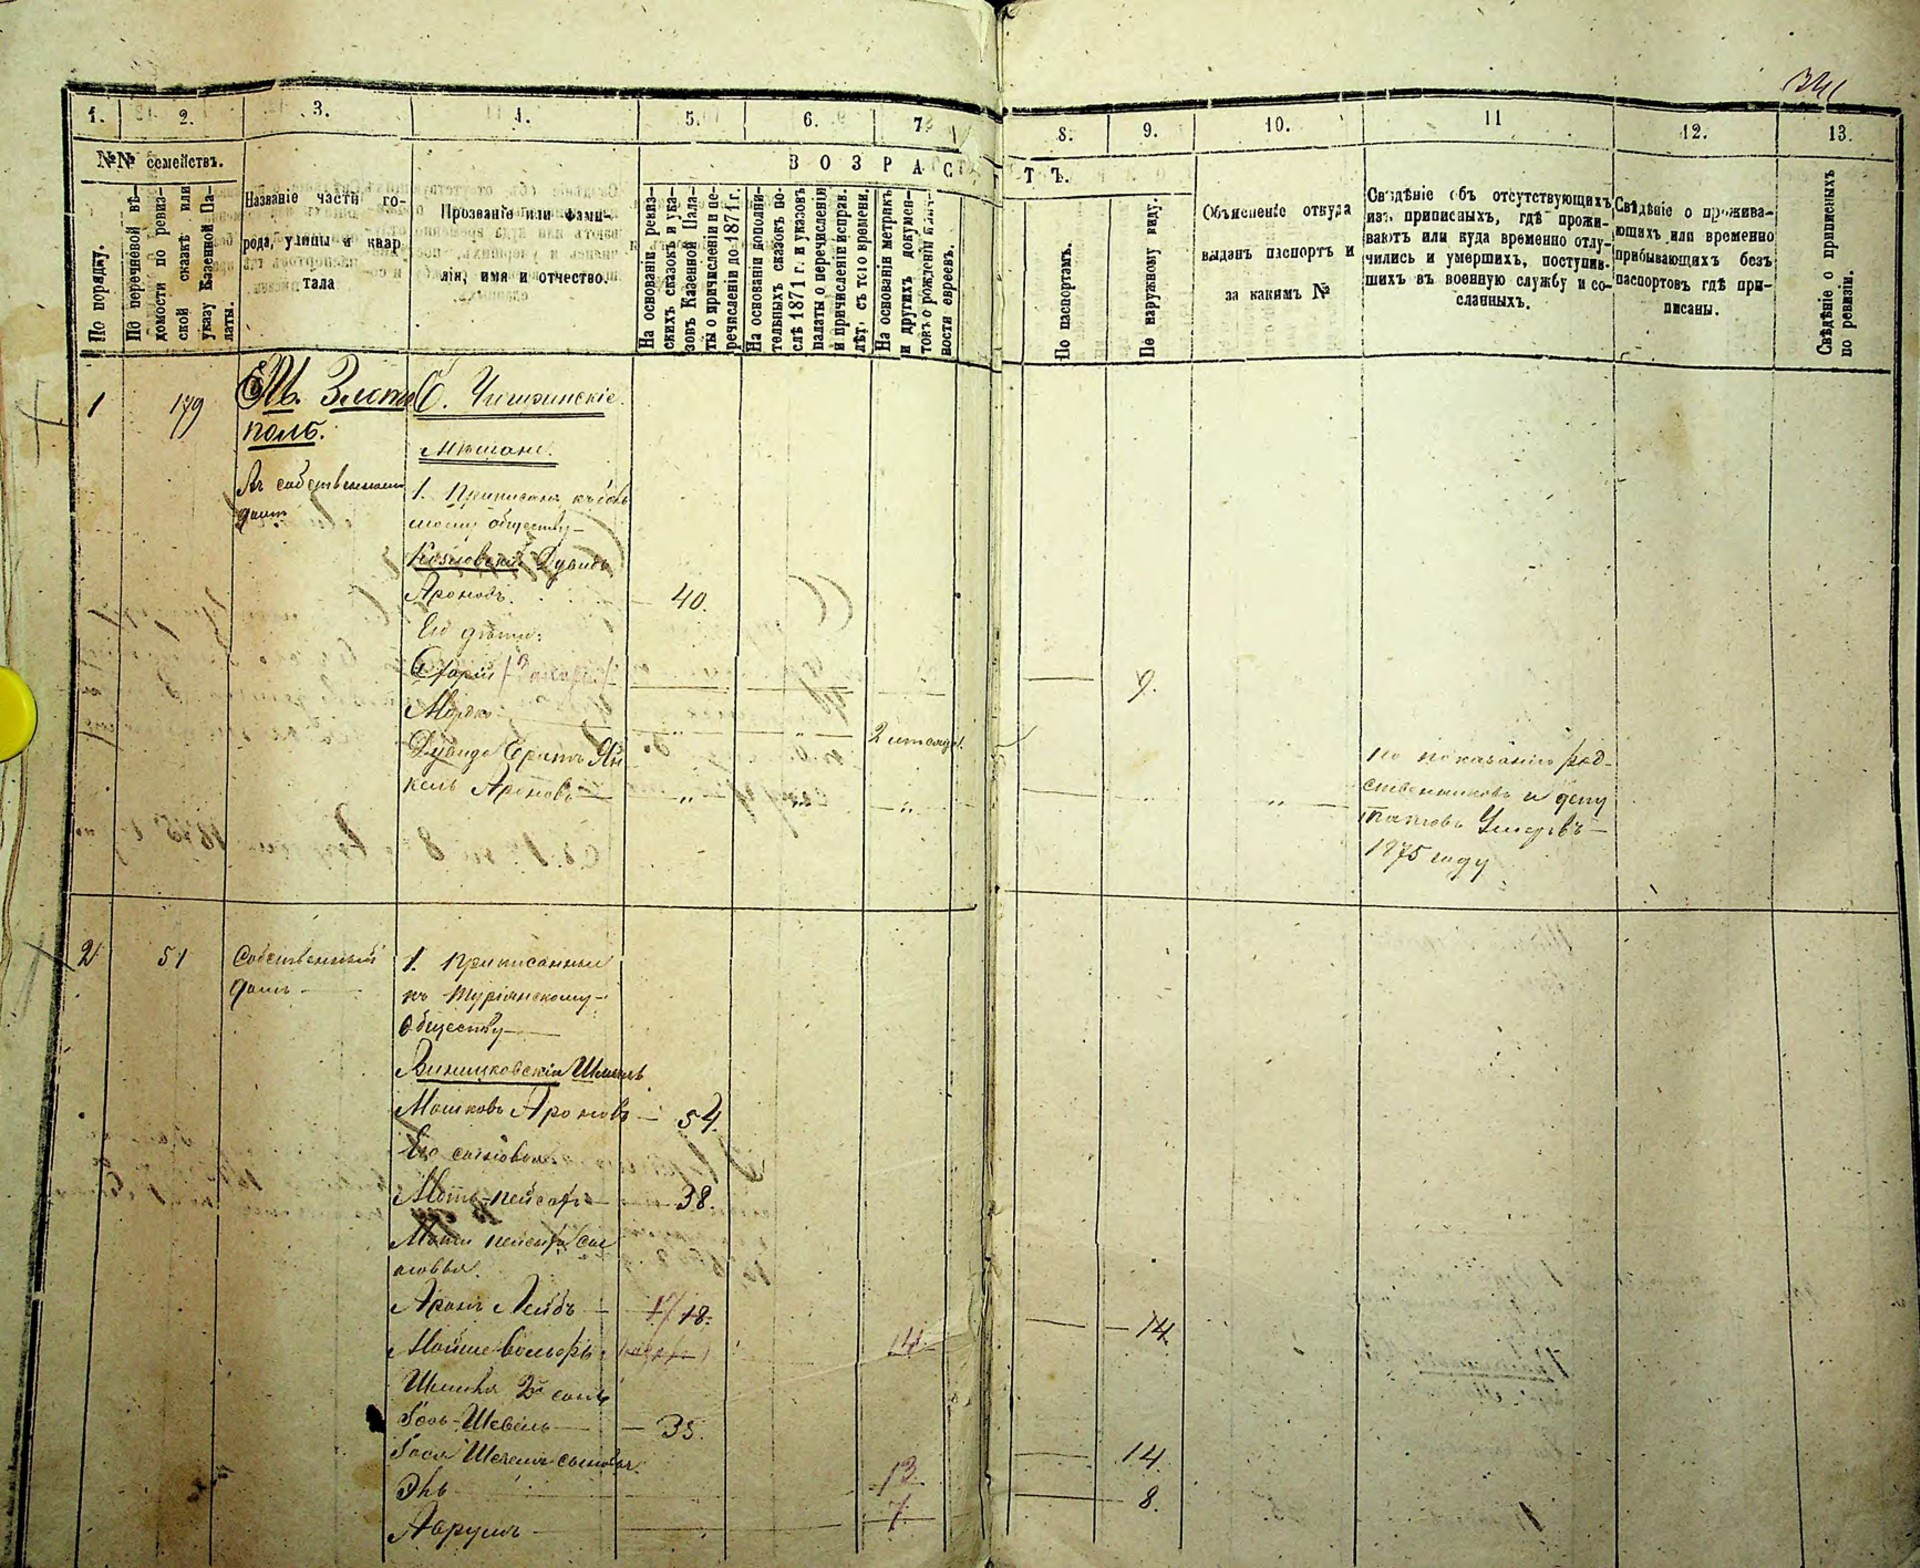 341
1. 2. 3. 4. 5. 6. 7. 8. 9. 10. 11 12. 13.
№№ семействъ.
ВОЗРАСТЪ.
По порядку.
По перечневой вѣ-
домости по ревиз-
ской сказкѣ или
указу Казенной Па-
латы.
Названіе части го-
рода, улицы и квар
тала
Прозваніе или фами-
лія, имя и отчество.
На основаніи ревиз-
скихъ сказокъ и ука-
зовъ Казенной Пала-
ты о причисленіи и пе-
речисленіи до 1871 г.
На основаніи дополни-
тельныхъ сказокъ по-
слѣ 1871 г. и указовъ
палаты о перечисленіи
и причисленіи исправ.
лѣт. съ того времени.
На основаніи метрикъ
и другихъ докумен-
товъ о рожденіи
ности евреевъ.
По паспортамъ.
По наружному виду.
Объясненіе откуда
выданъ паспортъ и
за какимъ №
Свѣдѣніе объ отсутствующихъ
изъ приписныхъ, гдѣ прожи-
ваютъ или куда временно отлу-
чились и умершихъ, поступив-
шихъ въ военную службу и со-
сланныхъ.
Свѣдѣніе о прожива-
ющихъ или временно
прибывающихъ безъ
паспортовъ гдѣ при-
писаны.
Свѣдѣніе о приписныхъ
по ревизіи.
1 179 М. Злато
поль.
Чигиринскіе
Мѣщане.
Въ собственномъ
домѣ
1. Приписан. къ
обществу
Козловскій Дувидъ
Ароновъ. 40.
Его дѣти:
9.
Мордко
2
Дувида Братъ Ян
кель Ароновъ
по показанію род-
ственниковъ и депу
татовъ Умеръ въ
1875 году
2 51 Собственный
домъ
1. Приписанные
къ Туріянскому
обществу
Виницковскій Шмиль
Мошковъ Ароновъ 54.
Его сыновья
Мотъ-Пейсахъ 38.
Моти Пейсаха сы
новья.
Аронъ Лейбъ 17 18. 14.
Мойше Вольфъ 14.
Шмиля 2й сынъ
Гось-Шевель 35.
Гося Шевеля сыновья.
13 14.
Аврумъ 7. 8.